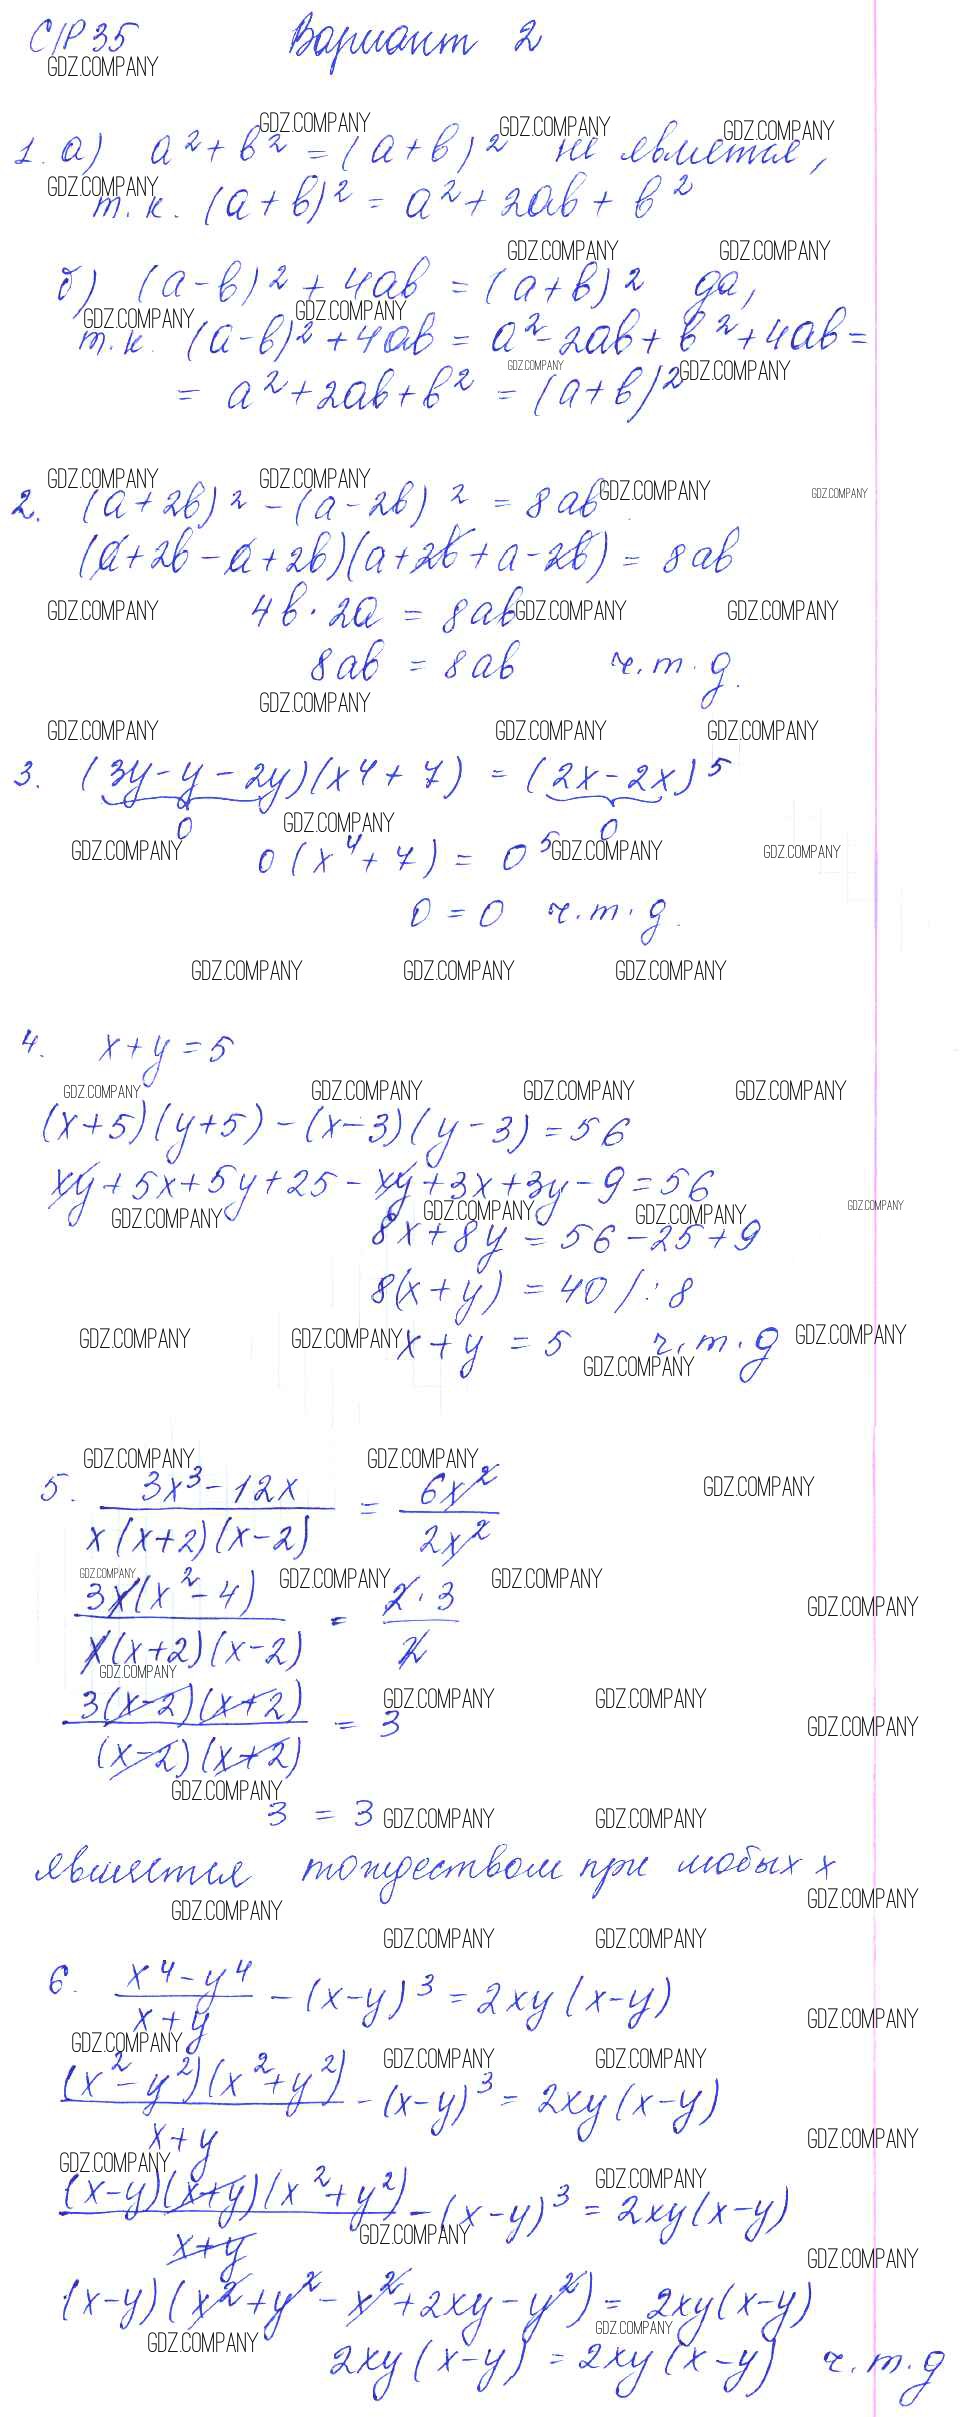 С/Р 35 Вариант 2
1. а) a² + b² = (a + b)² не является,
т.к. (a + b)² = a² + 2ab + b²
б) (a - b)² + 4ab = (a + b)² да,
т.к. (a - b)² + 4ab = a² - 2ab + b² + 4ab =
= a² + 2ab + b² = (a + b)²
2. (a + 2b)² - (a - 2b)² = 8ab
(a + 2b - a + 2b)(a + 2b + a - 2b) = 8ab
4b · 2a = 8ab
8ab = 8ab ч.т.д.
3. (3y - y - 2y)(x⁴ + 7) = (2x - 2x)⁵
0 0
0(x⁴ + 7) = 0⁵
0 = 0 ч.т.д.
4. x + y = 5
(x + 5)(y + 5) - (x - 3)(y - 3) = 56
xy + 5x + 5y + 25 - xy + 3x + 3y - 9 = 56
8x + 8y = 56 - 25 + 9
8(x + y) = 40 / : 8
x + y = 5 ч.т.д
5. (3x³ - 12x)/(x(x + 2)(x - 2)) = 6x²/2x²
3x(x² - 4)/(x(x + 2)(x - 2)) = 2·3/2
3(x - 2)(x + 2)/((x - 2)(x + 2)) = 3
3 = 3
является тождеством при любых x
6. (x⁴ - y⁴)/(x + y) - (x - y)³ = 2xy(x - y)
(x² - y²)(x² + y²)/(x + y) - (x - y)³ = 2xy(x - y)
(x - y)(x + y)(x² + y²)/(x + y) - (x - y)³ = 2xy(x - y)
(x - y)(x² + y² - x² + 2xy - y²) = 2xy(x - y)
2xy(x - y) = 2xy(x - y) ч.т.д
GDZ.COMPANY